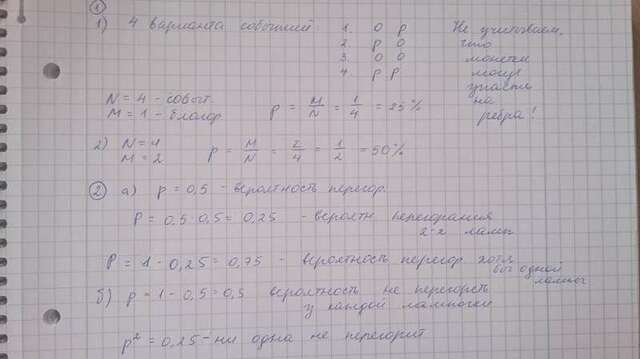 ①
1) 4 варианта событий 1. О р Не учитываем,
2. р О что
3. О О монетки
4. р р могут
упасть
N = 4 - событ. p = M/N = 1/4 = 25% на
M = 1 - благопр. ребра!
2) N = 4
M = 2 p = M/N = 2/4 = 1/2 = 50%
② а) p = 0,5 - вероятность перегор.
P = 0,5·0,5 = 0,25 - вероятн перегорания
2-х ламп
P = 1 - 0,25 = 0,75 - вероятность перегор. хотя
бы одной
лампы
б) p = 1 - 0,5 = 0,5 вероятность не перегореть
у каждой лампочки
p² = 0,25 - ни одна не перегорит